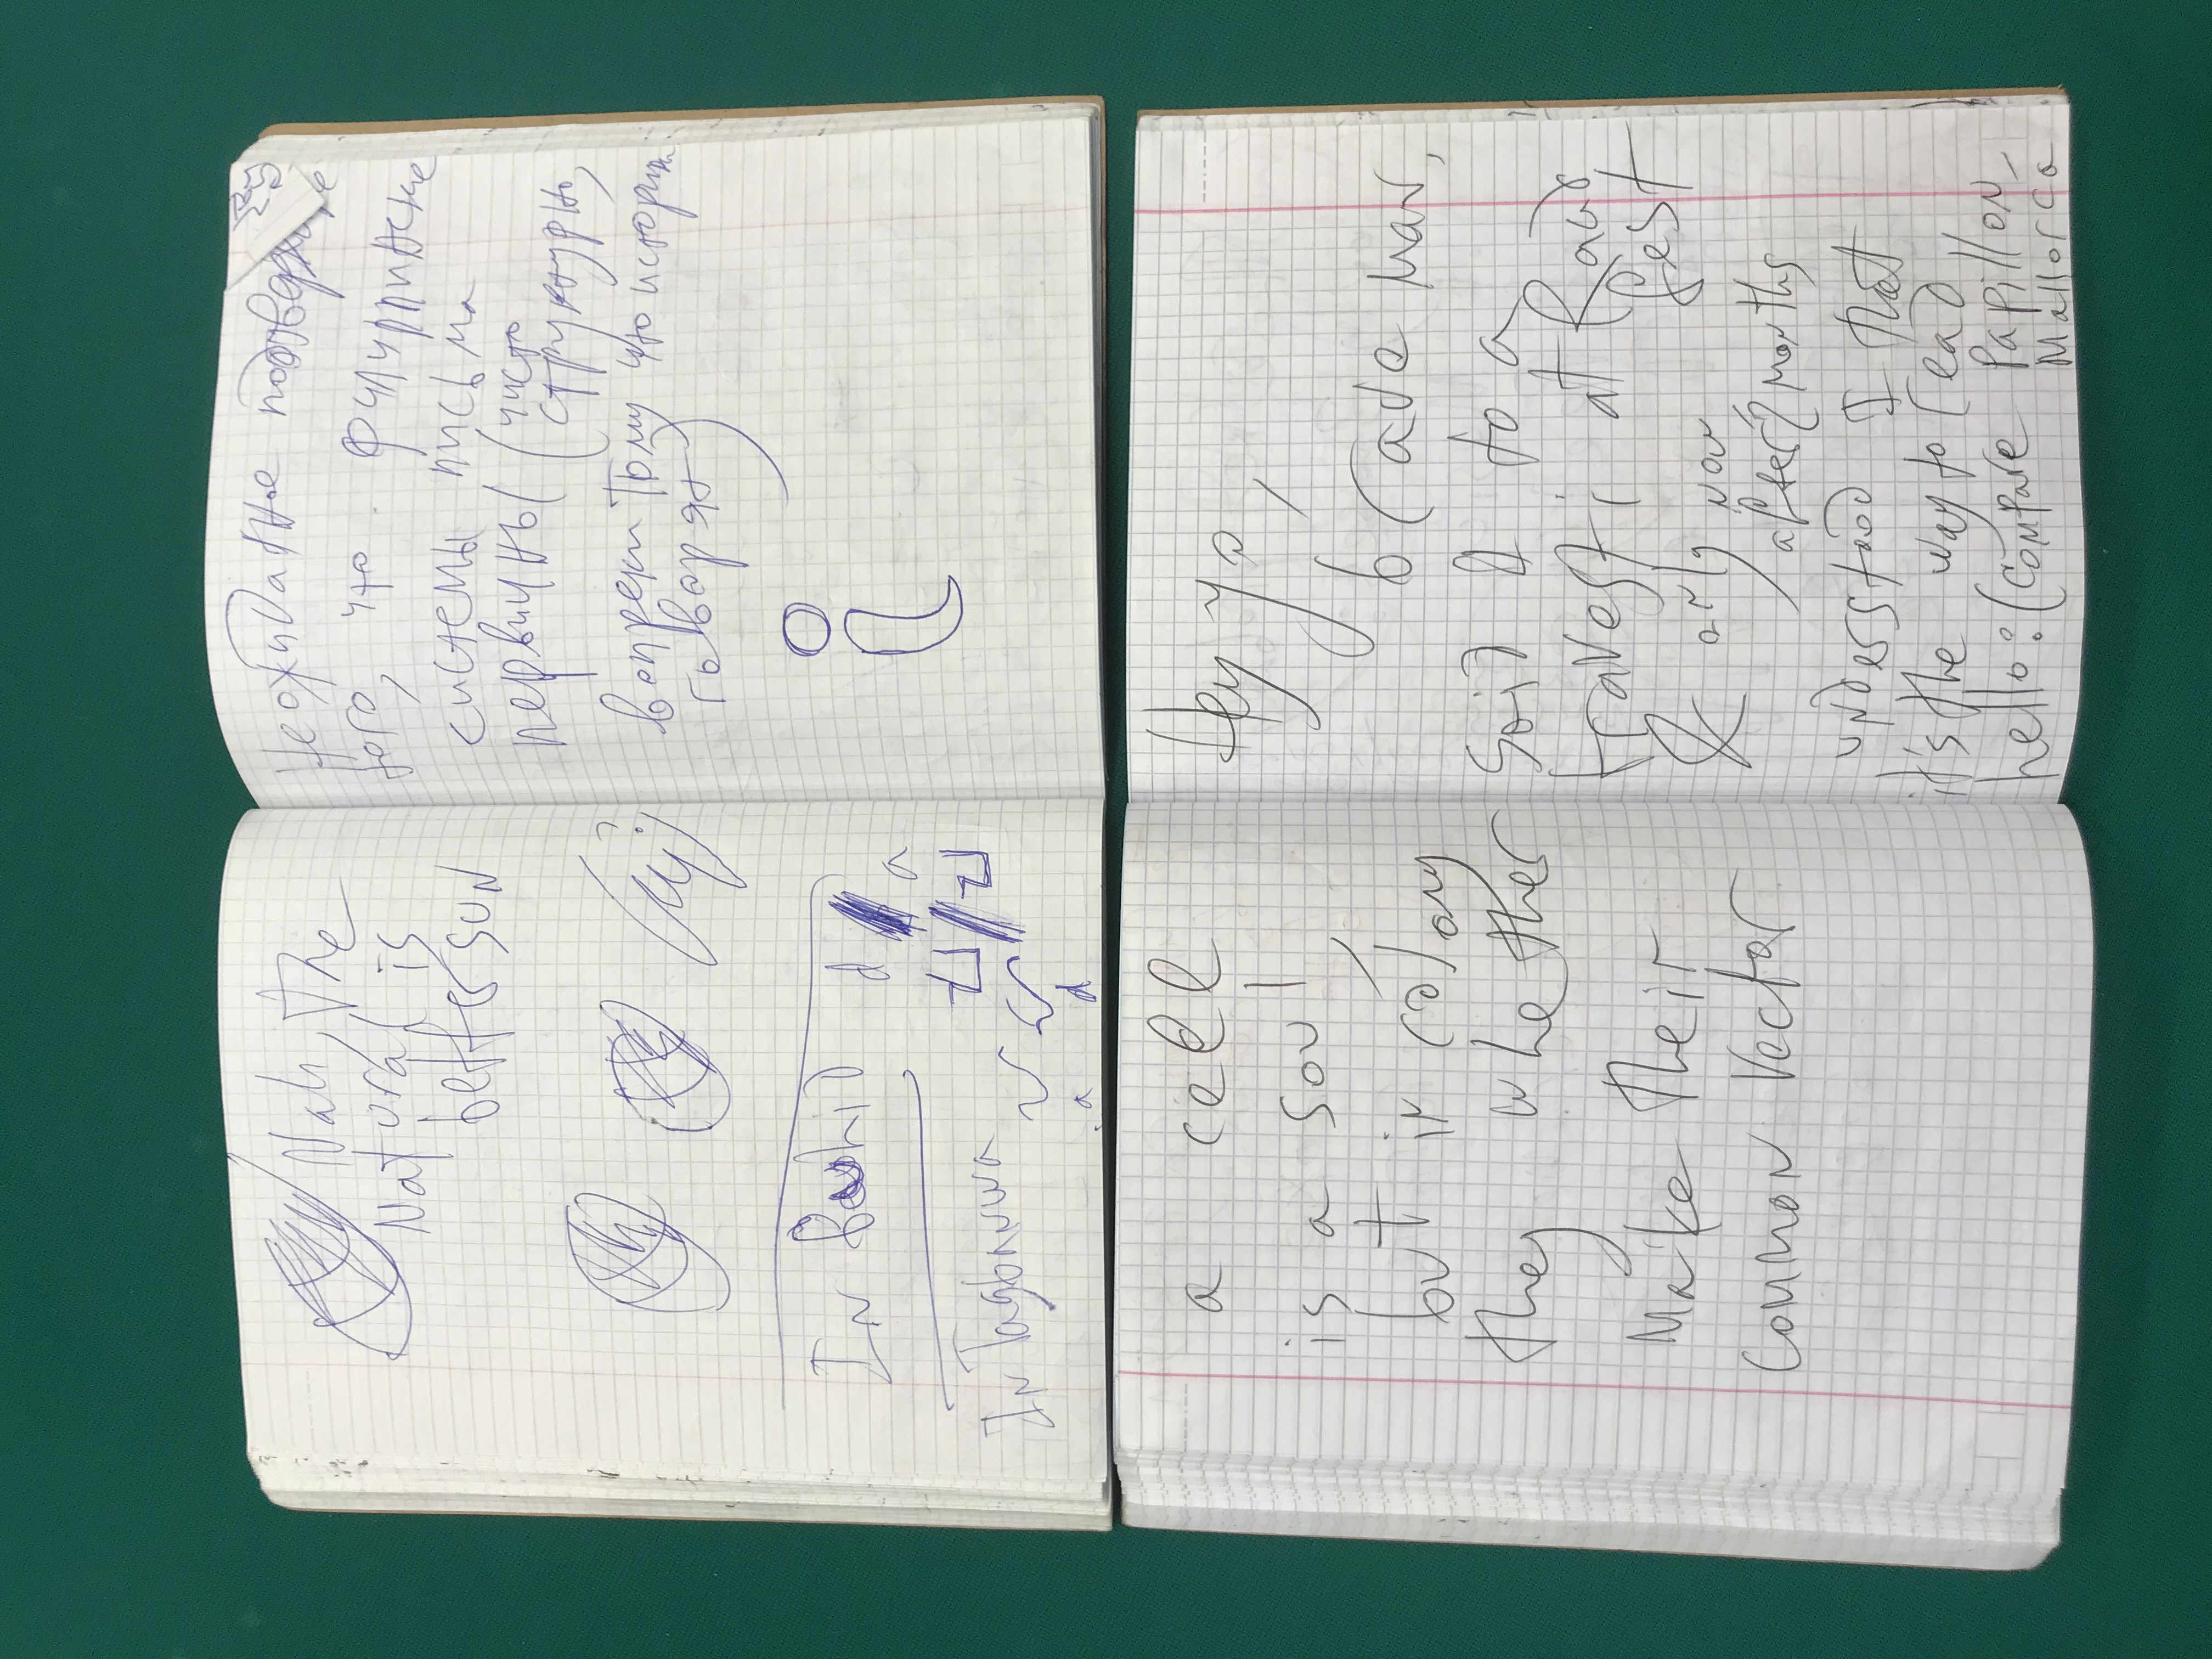 Nah, the
Natural is
better sun
In Buhid
d
a
In Tagbanwa
a d
Неожиданное подтверждение
того, что филиппинские
системы письма
первичны (чисто
структурно,
вопреки тому что историки
говорят)
i
a cell
is a soul,
but in colony
they whether
make their
common vector
Hey yo,
brave man,
said I to a
travesti at Raund
fest
& only now,
after 2 months
understood I that
it's the way to read
hello: (compare Papillon,
Mallorca